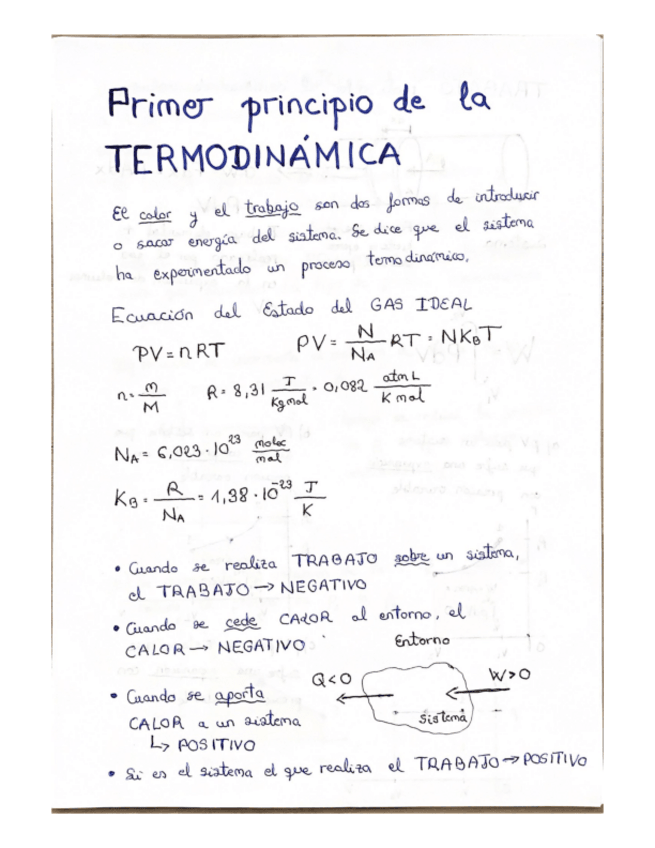 Primer principio de la
TERMODINÁMICA
El calor y el trabajo son dos formas de introducir
o sacar energía del sistema. Se dice que el sistema
ha experimentado un proceso termodinámico.
Ecuación del Estado del GAS IDEAL
PV = nRT PV = N/NA RT = NKBT
n = m/M R = 8,31 J/Kgmol = 0,082 atm L/K mol
NA = 6,023 · 10^23 molec/mol
KB = R/NA = 1,38 · 10^-23 J/K
• Cuando se realiza TRABAJO sobre un sistema,
el TRABAJO → NEGATIVO
• Cuando se cede CALOR al entorno, el
CALOR → NEGATIVO
Entorno
Q<0 W>0
Sistema
• Cuando se aporta
CALOR a un sistema
↳ POSITIVO
• Si es el sistema el que realiza el TRABAJO → POSITIVO